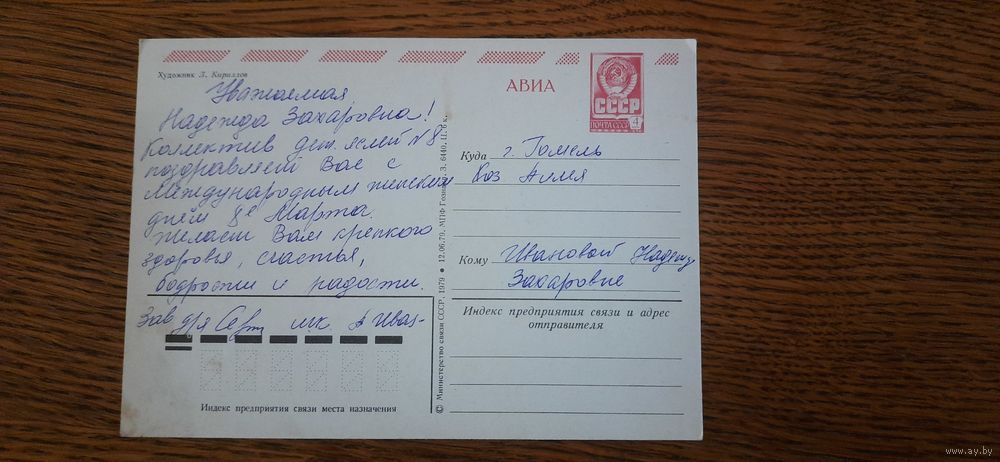 Художник Л. Кириллов
АВИА
СССР
ПОЧТА СССР
4
Уважаемая
Надежда Захаровна!
Коллектив дет. яслей №8
поздравляет Вас с
Международным женским
днём 8е Марта.
Желаем Вам крепкого
здоровья, счастья,
бодрости и радости.
Зав д/я
Индекс предприятия связи места назначения
© Министерство связи СССР, 1979 • 12.06.79. МПФ Гознака. З. 6440. Ц. 6 к.
Куда г. Гомель
Кому Ивановой Надежде
Захаровне
Индекс предприятия связи и адрес
отправителя
www.ay.by